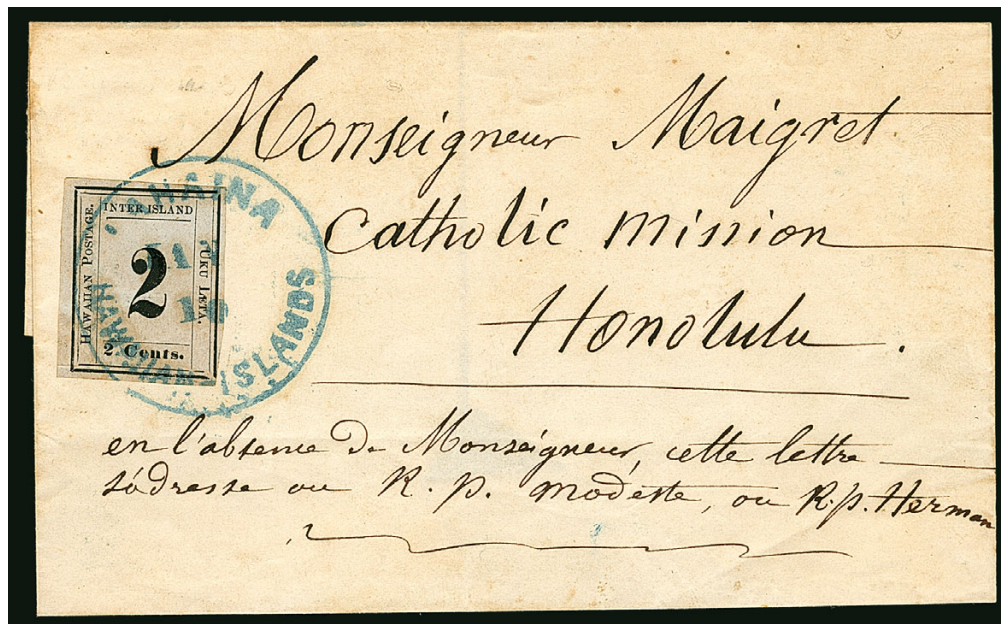 Monseigneur Maigret
Catholic Mission
Honolulu.
en l'absence de Monseigneur, cette lettre
s'adresse au R. p. modeste, ou R. p. Herman
INTER ISLAND
HAWAIIAN POSTAGE.
2
UKU LETA.
2 Cents.
LAHAINA
10
HAWAIIAN ISLANDS